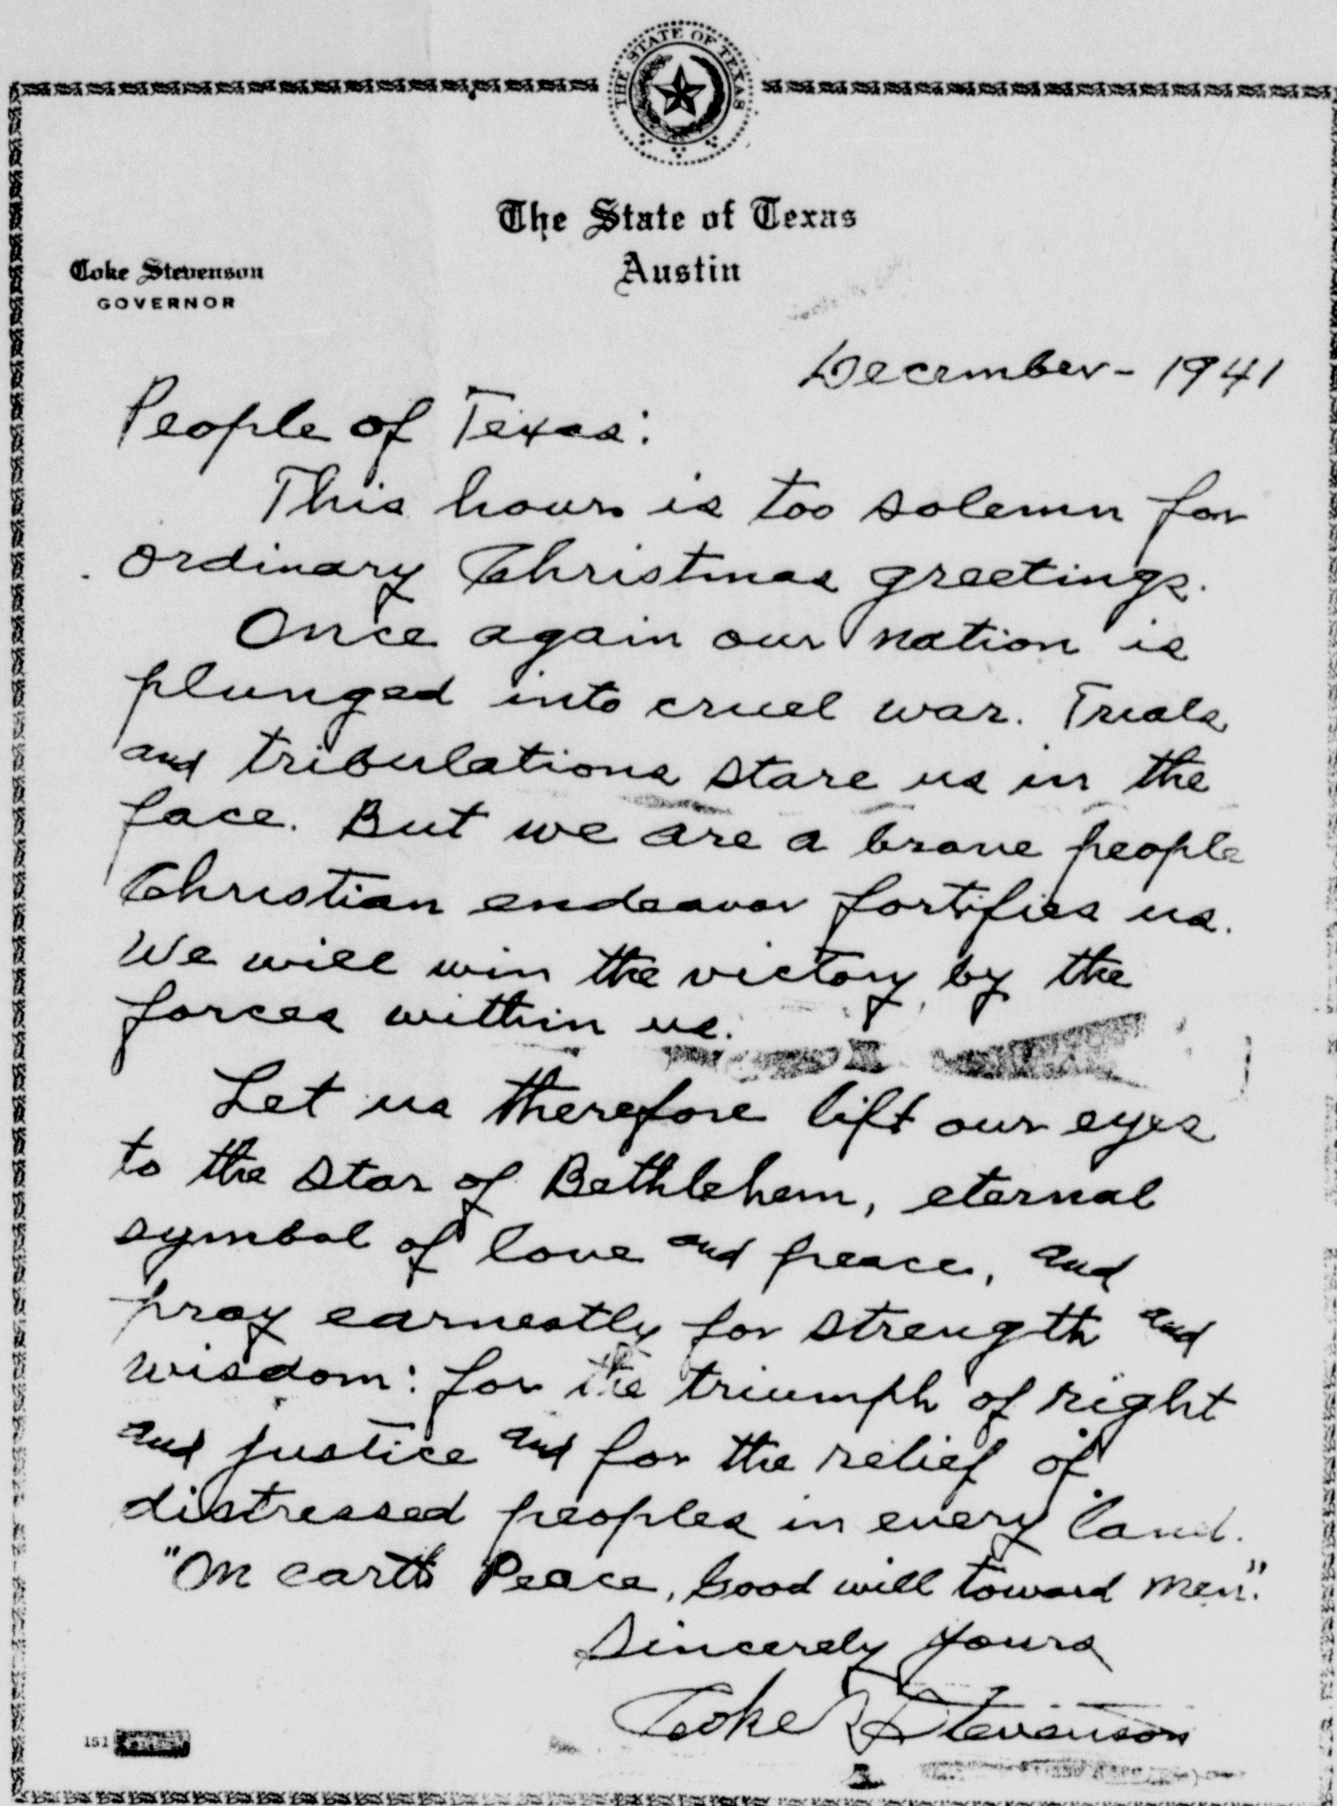 THE STATE OF TEXAS
The State of Texas
Austin
Coke Stevenson
GOVERNOR
December - 1941
People of Texas:
This hour is too solemn for
ordinary Christmas greetings.
Once again our nation is
plunged into cruel war. Trials
and tribulations stare us in the
face. But we are a brave people
Christian endeavor fortifies us.
We will win the victory by the
forces within us.
Let us therefore lift our eyes
to the star of Bethlehem, eternal
symbol of love and peace, and
pray earnestly for strength and
wisdom: for the triumph of right
and justice and for the relief of
distressed peoples in every land.
"On earth Peace, Good will toward men".
Sincerely yours
Coke R Stevenson
151